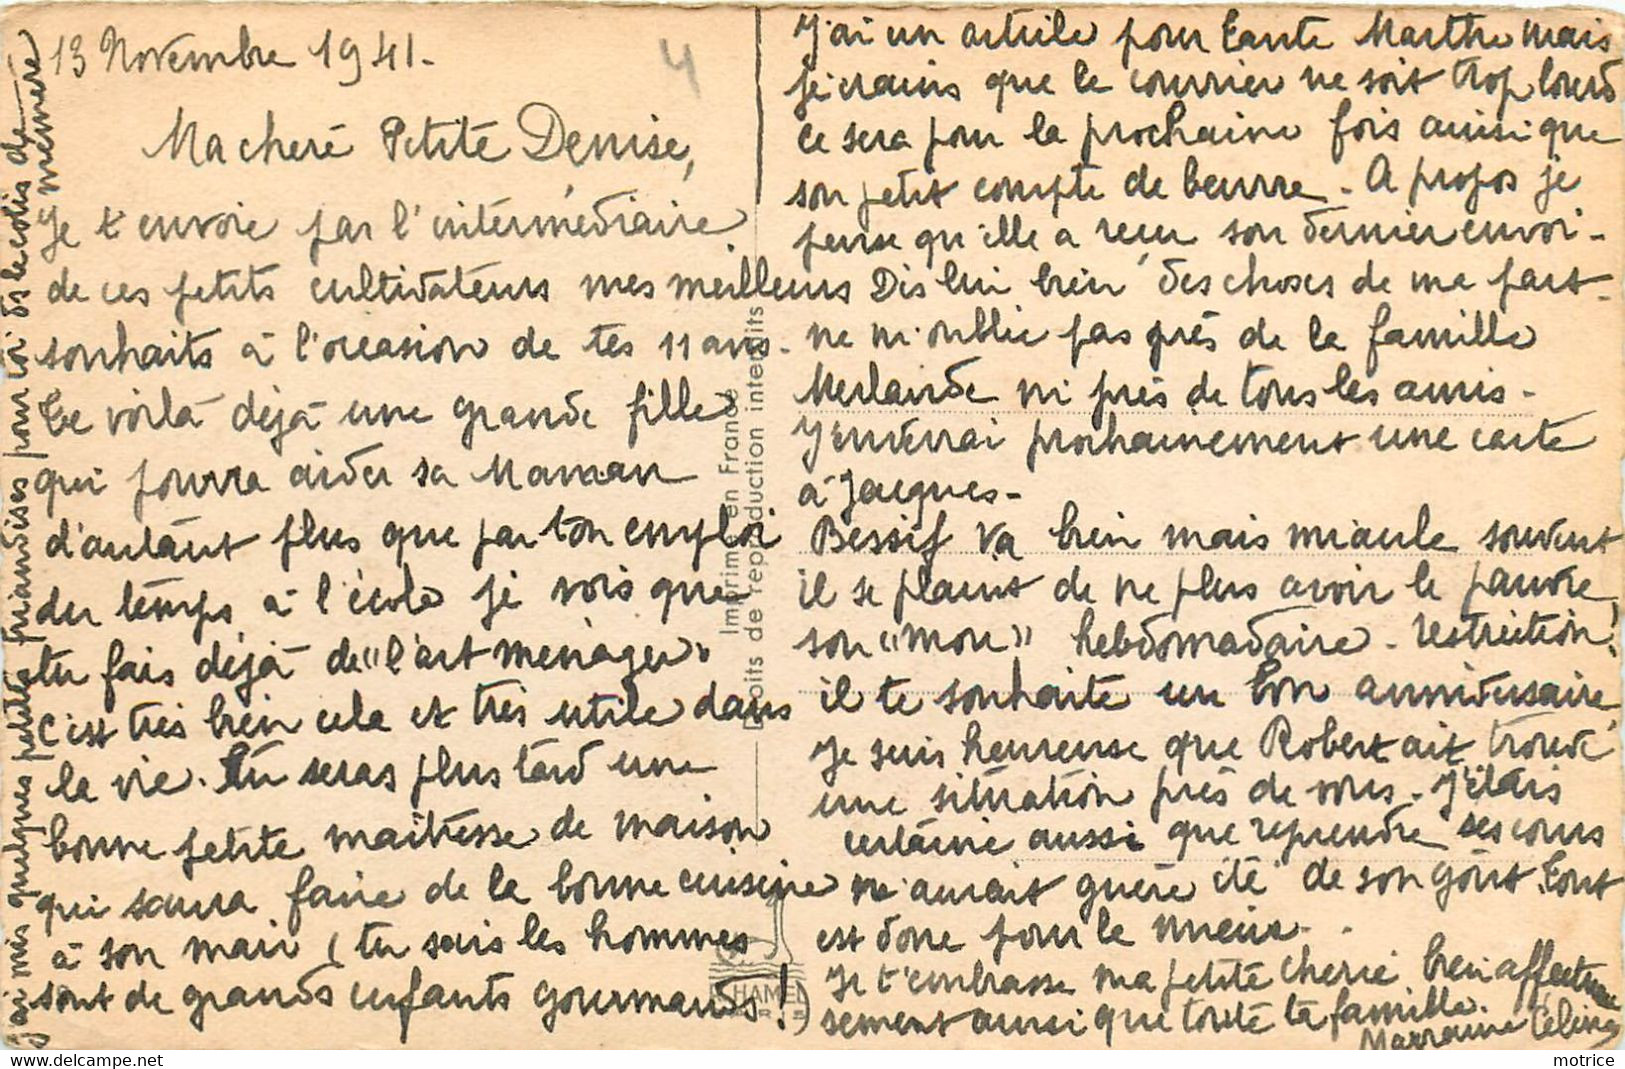 13 Novembre 1941.
4
Ma cheré Petite Denise,
Je t'envoie par l'intermédiaire
de ces petits cultivateurs mes meilleurs
souhaits à l'occasion de tes 11 ans.
Te voilà déjà une grande fille
qui pourra aider sa Maman
d'autant plus que par ton emploi
du temps à l'école je vois que
tu fais déjà de "l'art ménager"
c'est très bien cela et très utile dans
la vie. Tu seras plus tard une
bonne petite maîtresse de maison
qui saura faire de la bonne cuisine
à son mari (tu sais les hommes
sont de grands enfants gourmands!)
j'ai mis quelques petites friandises pour toi ds le colis de
mémère
J'ai un article pour tante Marthe mais
je crains que le courrier ne soit trop lourd
ce sera pour la prochaine fois ainsi que
son petit compte de beurre - A propos je
pense qu'elle a reçu son dernier envoi -
Dis lui bien des choses de ma part -
ne m'oublie pas près de la famille
Merlande ni près de tous les amis -
J'enverrai prochainement une carte
à Jacques -
Bessif va bien mais miaule souvent
il se plaint de ne plus avoir le pauvre
son "mou" hebdomadaire - restriction!
il te souhaite un bon anniversaire,
Je suis heureuse que Robert ait trouvé
une situation près de vous - J'étais
certaine aussi que reprendre ses cours
n'aurait guère été de son goût. Tout
est donc pour le mieux -
Je t'embrasse ma petite cherie bien affectueu
sement ainsi que toute ta famille.
Marraine Celina
Imprimé en France
Droits de reproduction interdits
motrice